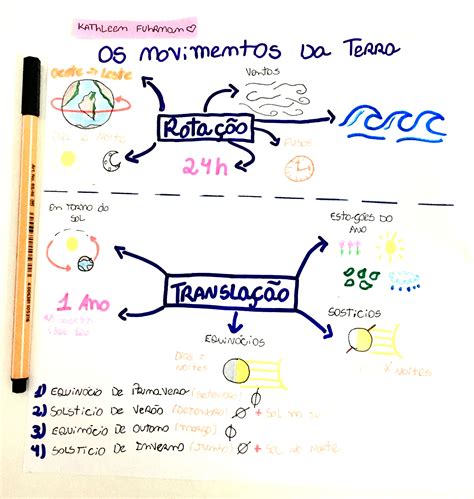 KATHLEEN FUHRMAN
OS MOVIMENTOS DA TERRA
OESTE → LESTE
VENTOS
ROTAÇÃO
DIA E NOITE
24h
FUSOS
EM TORNO DO SOL
ESTAÇÕES DO ANO
1 ANO
TRANSLAÇÃO
SOSTÍCIOS
EQUINÓCIOS
DIAS =
NOITES
NOITES
1) EQUINÓCIO DE PRIMAVERA (SETEMBRO)
2) SOLSTÍCIO DE VERÃO (DEZEMBRO) + SOL NO SUL
3) EQUINÓCIO DE OUTONO (MARÇO)
4) SOLSTÍCIO DE INVERNO (JUNHO) + SOL NO NORTE